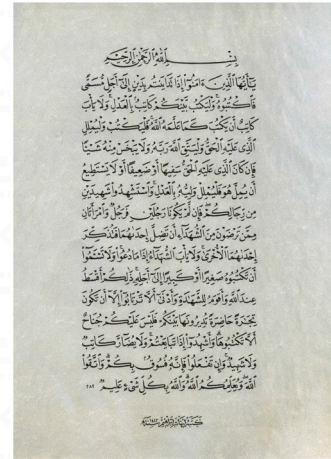 بِسْمِ اللَّهِ الرَّحْمَٰنِ الرَّحِيمِ
يَٰٓأَيُّهَا الَّذِينَ ءَامَنُوٓا۟ إِذَا تَدَايَنتُم بِدَيْنٍ إِلَىٰٓ أَجَلٍ مُّسَمًّى
فَاكْتُبُوهُ وَلْيَكْتُب بَّيْنَكُمْ كَاتِبٌۢ بِالْعَدْلِ وَلَا يَأْبَ
كَاتِبٌ أَن يَكْتُبَ كَمَا عَلَّمَهُ اللَّهُ فَلْيَكْتُبْ وَلْيُمْلِلِ
الَّذِى عَلَيْهِ الْحَقُّ وَلْيَتَّقِ اللَّهَ رَبَّهُۥ وَلَا يَبْخَسْ مِنْهُ شَيْـًٔا
فَإِن كَانَ الَّذِى عَلَيْهِ الْحَقُّ سَفِيهًا أَوْ ضَعِيفًا أَوْ لَا يَسْتَطِيعُ
أَن يُمِلَّ هُوَ فَلْيُمْلِلْ وَلِيُّهُۥ بِالْعَدْلِ وَاسْتَشْهِدُوا۟ شَهِيدَيْنِ
مِن رِّجَالِكُمْ فَإِن لَّمْ يَكُونَا رَجُلَيْنِ فَرَجُلٌ وَامْرَأَتَانِ
مِمَّن تَرْضَوْنَ مِنَ الشُّهَدَآءِ أَن تَضِلَّ إِحْدَىٰهُمَا فَتُذَكِّرَ
إِحْدَىٰهُمَا الْأُخْرَىٰ وَلَا يَأْبَ الشُّهَدَآءُ إِذَا مَا دُعُوا۟ وَلَا تَسْـَٔمُوٓا۟
أَن تَكْتُبُوهُ صَغِيرًا أَوْ كَبِيرًا إِلَىٰٓ أَجَلِهِۦ ذَٰلِكُمْ أَقْسَطُ
عِندَ اللَّهِ وَأَقْوَمُ لِلشَّهَٰدَةِ وَأَدْنَىٰٓ أَلَّا تَرْتَابُوٓا۟ إِلَّآ أَن تَكُونَ
تِجَٰرَةً حَاضِرَةً تُدِيرُونَهَا بَيْنَكُمْ فَلَيْسَ عَلَيْكُمْ جُنَاحٌ
أَلَّا تَكْتُبُوهَا وَأَشْهِدُوٓا۟ إِذَا تَبَايَعْتُمْ وَلَا يُضَآرَّ كَاتِبٌ
وَلَا شَهِيدٌ وَإِن تَفْعَلُوا۟ فَإِنَّهُۥ فُسُوقٌۢ بِكُمْ وَاتَّقُوا۟
اللَّهَ وَيُعَلِّمُكُمُ اللَّهُ وَاللَّهُ بِكُلِّ شَىْءٍ عَلِيمٌ ٢٨٢